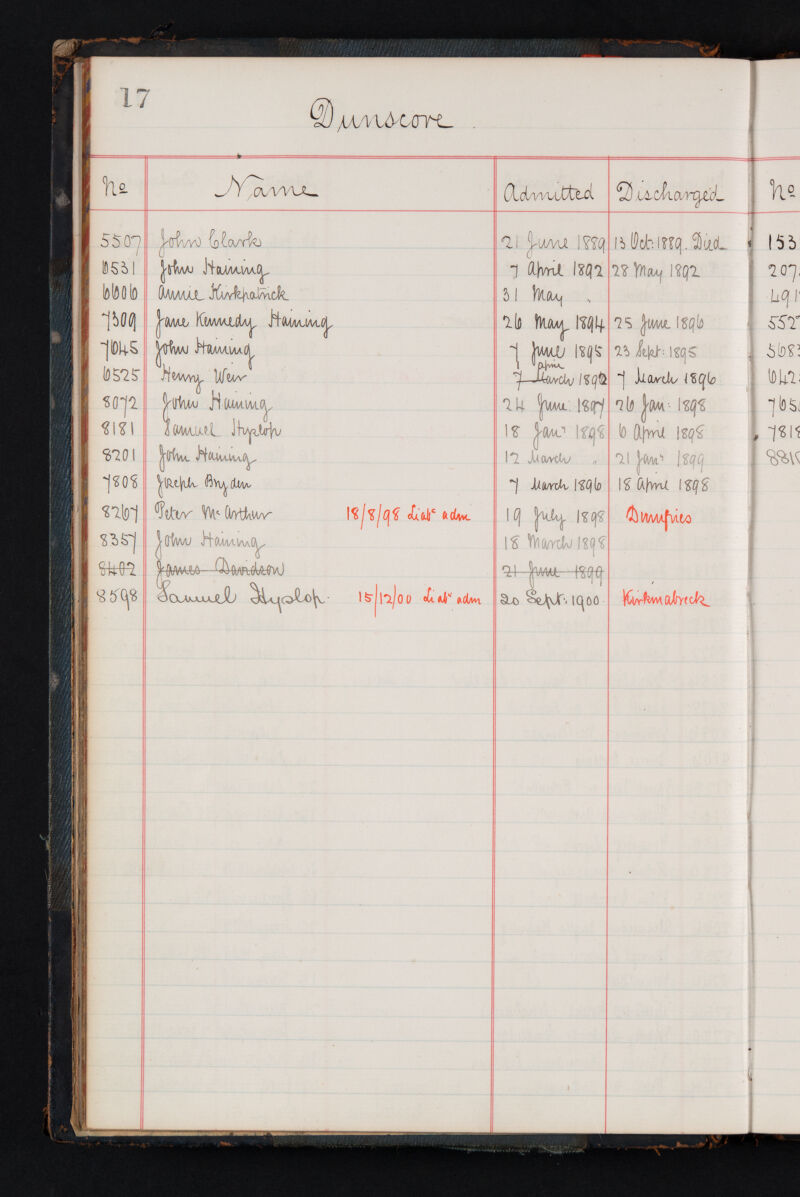 17
Dunscore
No Name Admitted Discharged No
5507 John Clark 21 June 1889 13 Oct: 1889. Died 153
6531 John Haining 7 April 1892 28 May 1892 207
6606 Annie Kirkpatrick 31 May " 491
7309 Jane Kennedy Haining 26 May 1894 25 June 1896 552
7645 John Haining 7 June 1895 23 Sept: 1895 568
6525 Henry Weir 7 March April 1892 7 March 1896 642
8072 John Haining 24 June 1897 26 Jan: 1898 765
8181 Samuel Hyslop 18 Jany 1898 6 April 1898 781
8201 John Haining 12 March " 21 Jany 1899 881
7808 Joseph Bryden 7 March 1896 18 April 1898
8267 Peter McArthur 18/8/98 Liaby adm 19 July 1898 Dumfries
8357 John Haining 18 March 1898
8402 James Davidson 21 June 1899
8598 Samuel Hyslop. 15/12/00 Liaby adm 20 Sept: 1900 Kirkmabreck